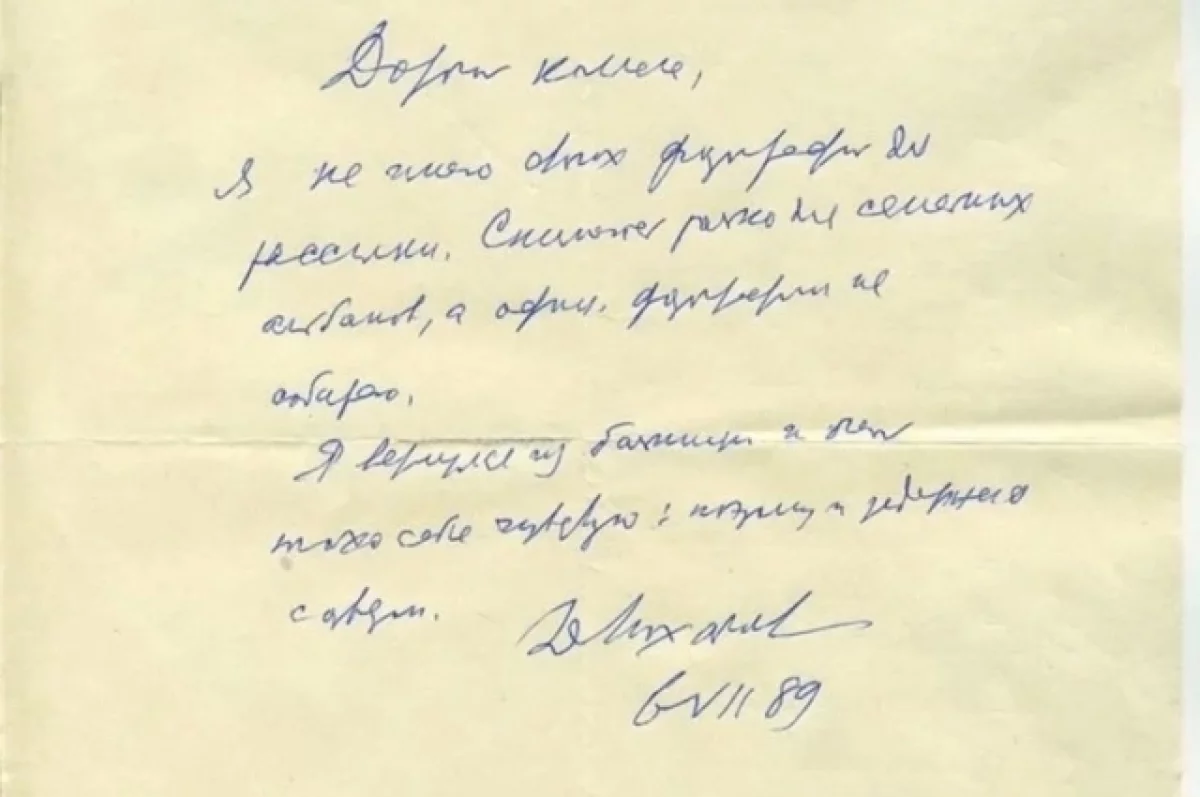 Дорогие коллеги,
Я не имею своих фотографий для
рассылки. Снимаюсь редко для семейных
альбомов, а офиц. фотографии не
собираю.
Я вернулся из больницы и очень
плохо себя чувствую: поэтому и задержался
с ответом.
Д Лихачев
6 VII 89